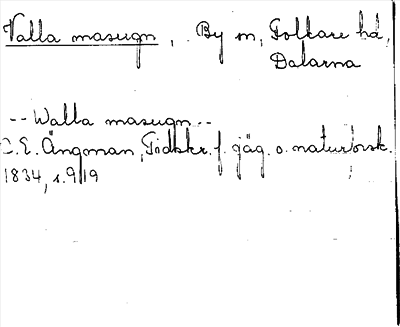 Valla masugn, By sn, Folkare hd,
Dalarna
-- Walla masugn --
C.E. Ångman, Tidskr. f. jäg. o. naturforsk.
1834, s. 919